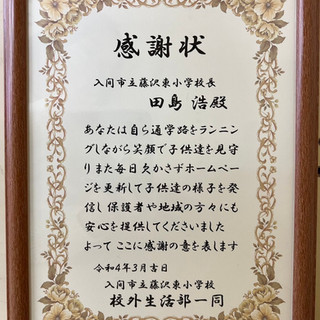 感謝状
入间市立藤沢東小学校長
田島 浩殿
あなたは自ら通学路をランニン
グしながら笑顔で子供達を見守
りまた毎日欠かさずホームペー
ジを更新して子供達の様子を発
信し 保護者や地域の方々にも
安心を提供してくださいました
よって ここに感謝の意を表します
令和4年3月吉日
入间市立藤沢東小学校
校外生活部一同